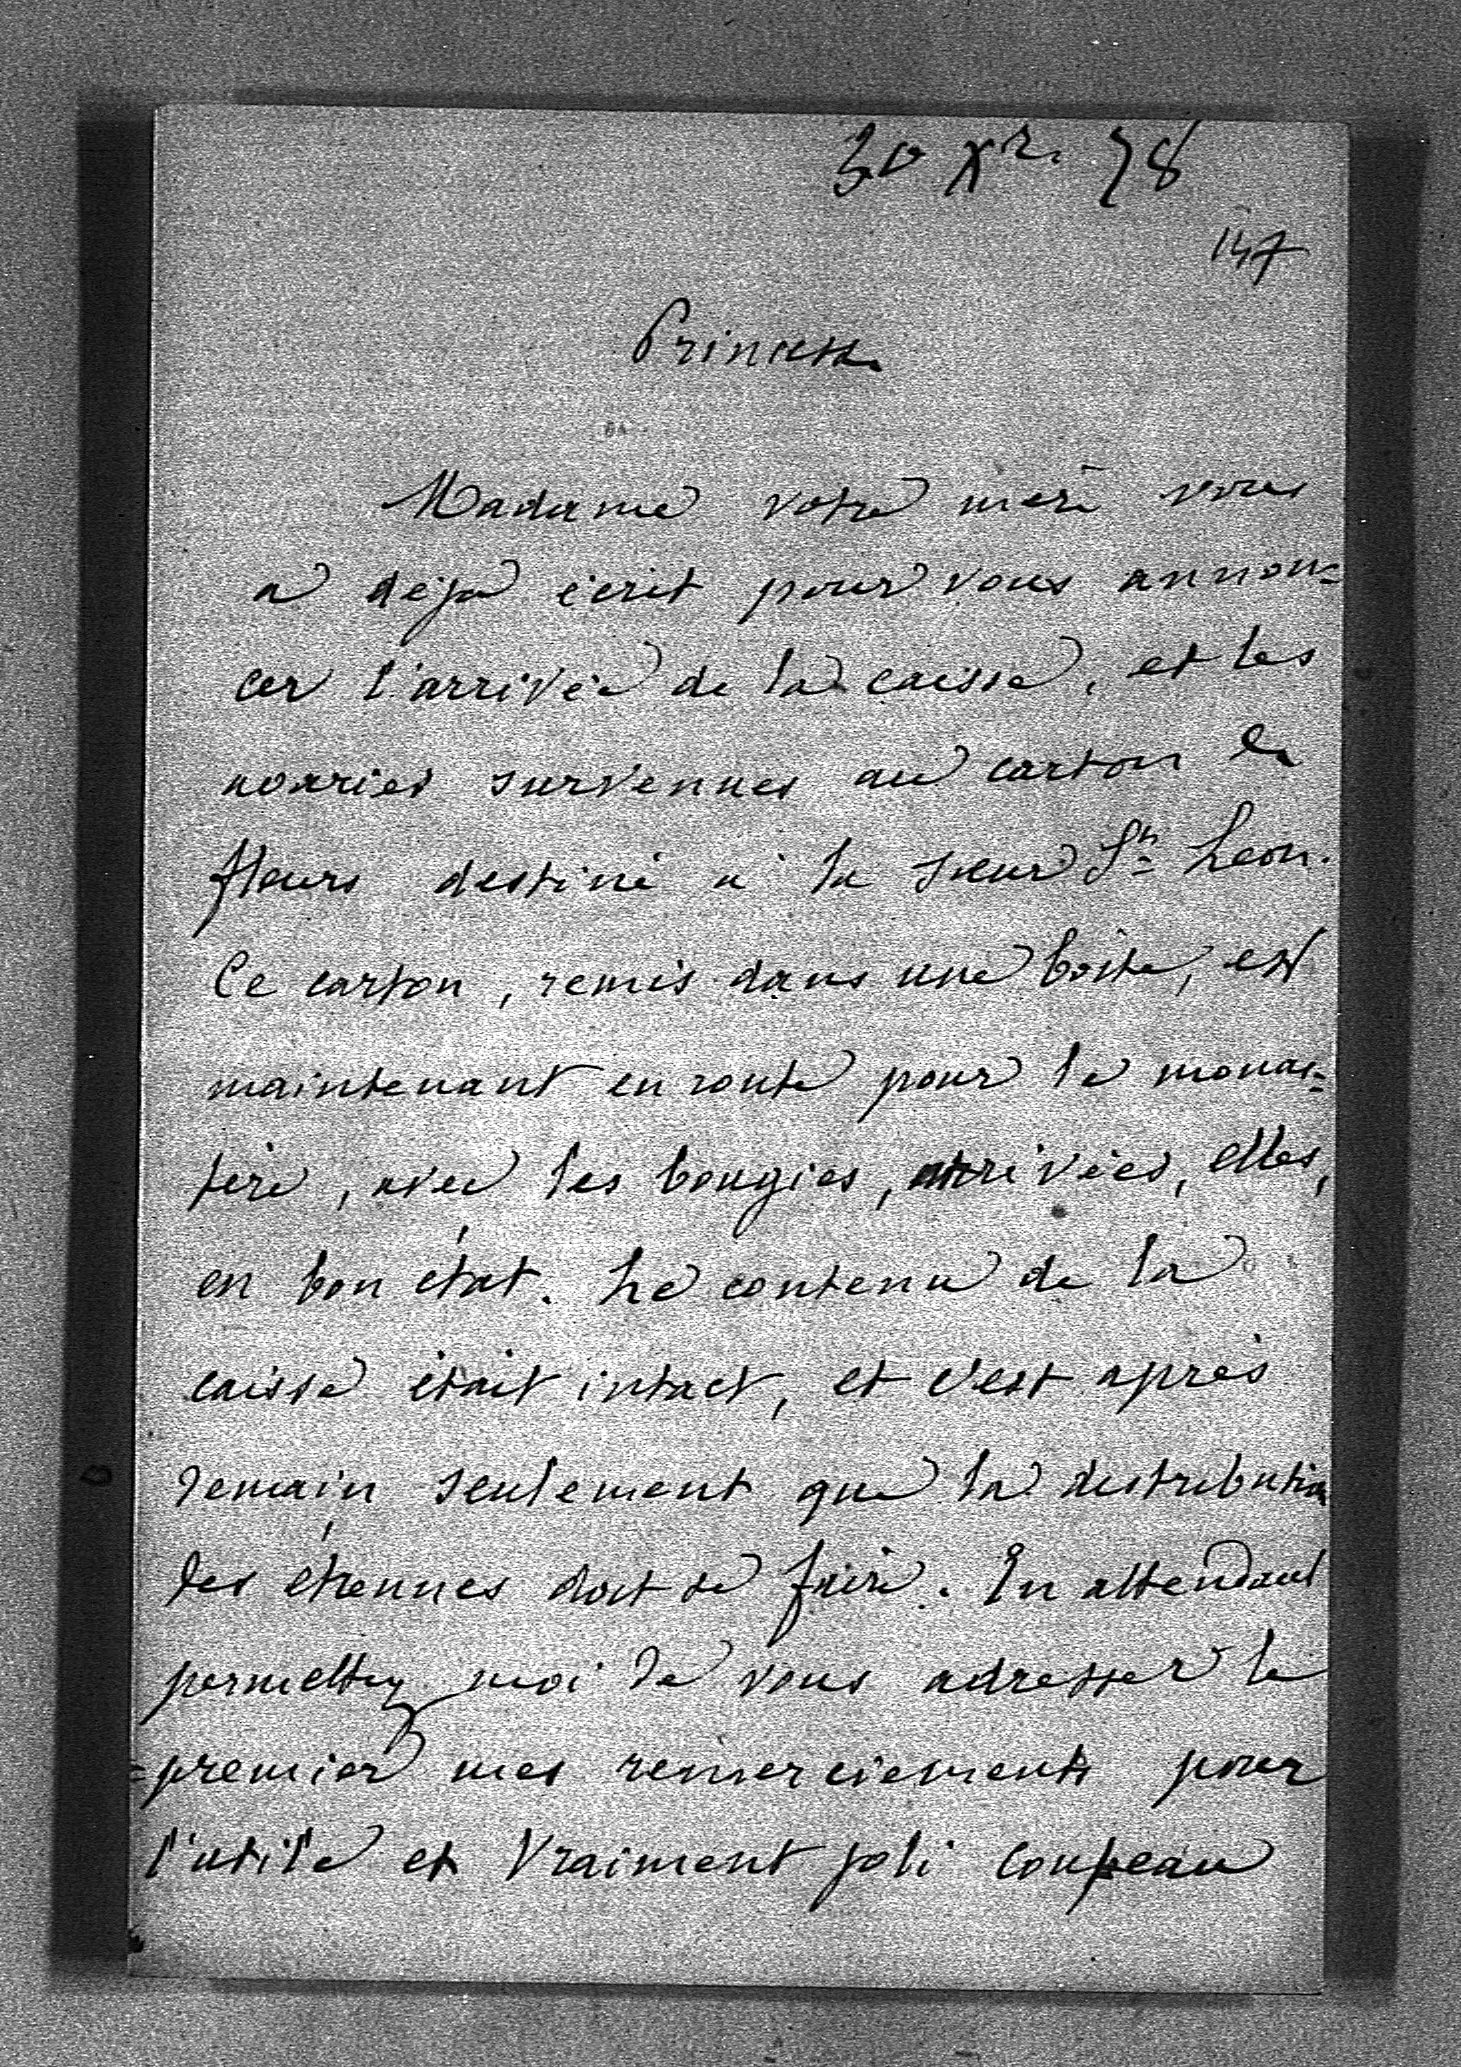 30 Xr. 78
147
Princesse
Madame votre mère vous
a déja écrit pour vous annon=
cer l'arrivée de la caisse, et les
avaries survenues au carton de
fleurs destiné à la sœur Léon.
Ce carton, remis dans une boite, est
maintenant en route pour le monas=
tère, avec les bougies, arrivées, elles,
en bon état. Le contenu de la
caisse était intact, et c'est après
demain seulement que la distribution
des étrennes doit se faire. En attendant
permettez moi de vous adresser le
premier mes remerciements pour
l'utile et vraiment joli coupeau